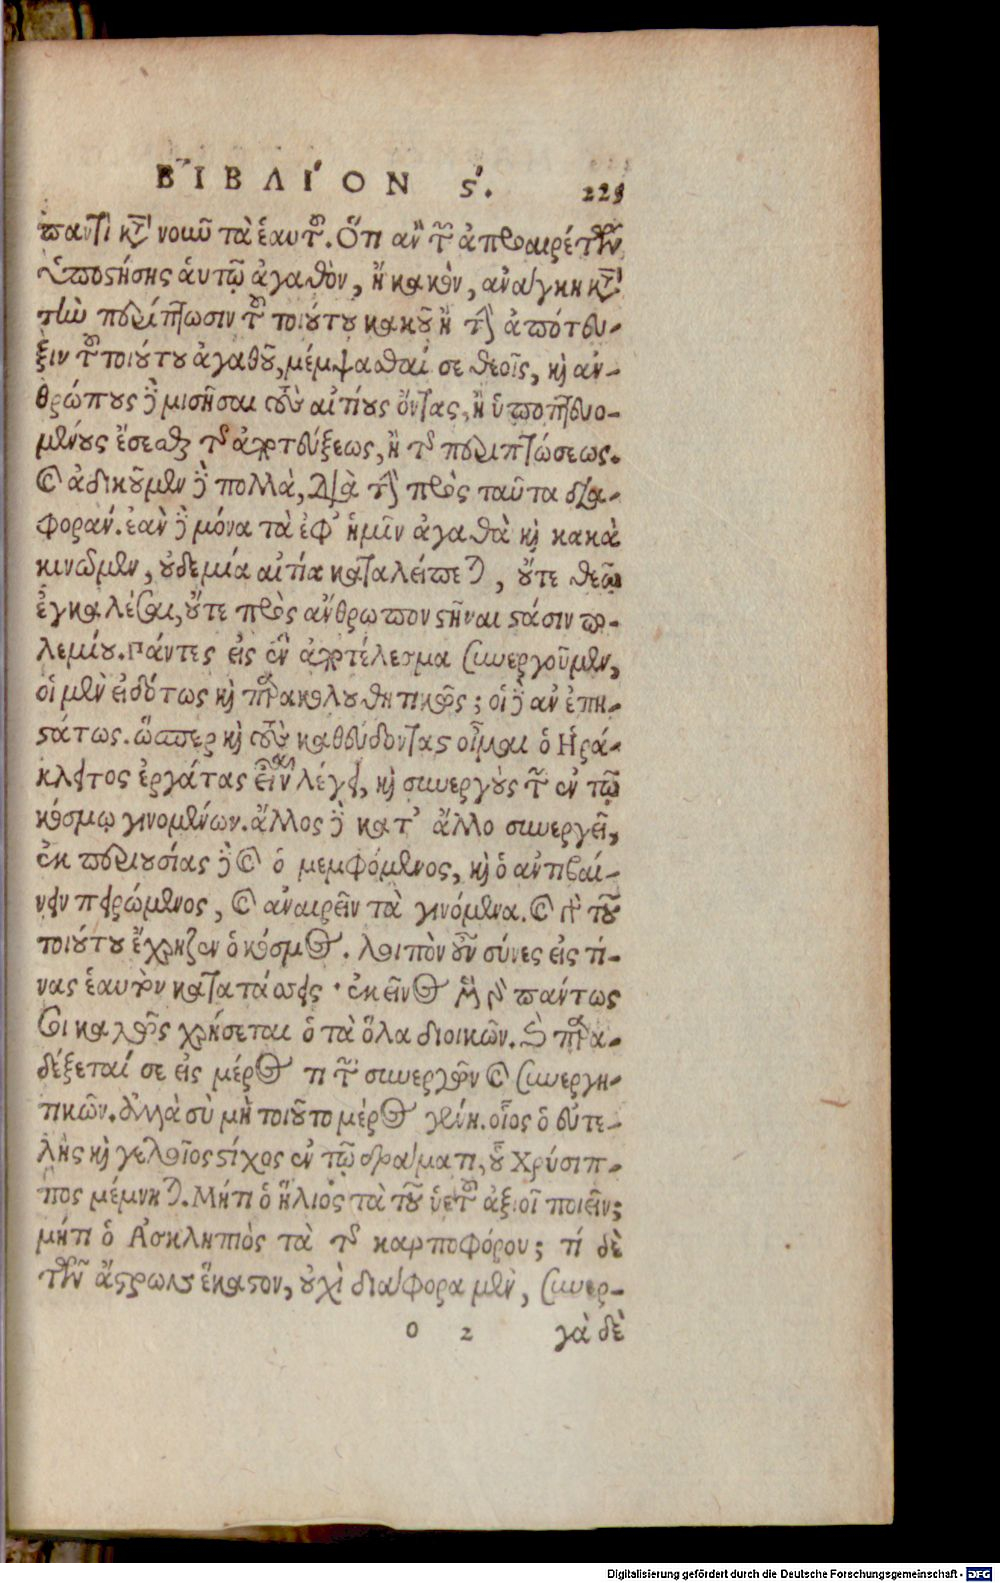 ΒΙΒΛΙΌΝ ϛ΄. 225
παντὶ κατὰ νοῦν τὰ ἑαυτοῦ. Ὅτι ἂν τοῦ ἀπροαιρέτων
ὑποστήσῃς ἁυτῷ ἀγαθὸν, ἢ κακὸν, ἀνάγκη κατὰ
τὴν περίπτωσιν τοῦ τοιούτου κακοῦ ἢ τὴν ἀπότευ-
ξιν τοῦ τοιούτου ἀγαθοῦ, μέμψασθαί σε θεοῖς, καὶ ἀν-
θρώπους δὲ μισῆσαι τοὺς αἰτίους ὄντας, ἢ ὑποπτευο-
μένους ἔσεσθαι τῆς ἀποτεύξεως, ἢ τῆς περιπτώσεως.
καὶ ἀδικοῦμεν δὴ πολλὰ, διὰ τὴν πρὸς ταῦτα δια-
φοράν. ἐὰν δὲ μόνα τὰ ἐφ’ ἡμῖν ἀγαθὰ καὶ κακὰ
κινωμεν, οὐδεμία αἰτία καταλείπεται, οὔτε θεῷ
ἐγκαλέσαι, οὔτε πρὸς ἄνθρωπον στῆναι στάσιν πο-
λεμίου. Πάντες εἰς ἓν ἀποτέλεσμα συνεργοῦμεν,
οἱ μὲν εἰδότως καὶ παρακολουθητικῶς; οἱ δὲ ἀνεπη-
στάτως. ὥσπερ καὶ τοὺς καθεύδοντας οἶμαι ὁ Ἡρά-
κλειτος ἐργάτας εἶναι λέγει, καὶ συνεργοὺς τῶν ἐν τῷ
κόσμῳ γινομένων. ἄλλος δὲ κατ’ ἄλλο συνεργεῖ,
ἐκ περιουσίας δὲ καὶ ὁ μεμφόμενος, καὶ ὁ ἀντιβαί-
νειν πειρώμενος, καὶ ἀναιρεῖν τὰ γινόμενα. καὶ γὰρ τοῦ
τοιούτου ἔχρηζεν ὁ κόσμος. λοιπὸν οὖν σύνες εἰς τί-
νας ἑαυτὸν κατατάσσεις · ἐκεῖνος μὲν γὰρ πάντως
σοι καλῶς χρήσεται ὁ τὰ ὅλα διοικῶν. καὶ παρα-
δέξεταί σε εἰς μέρος τι τῶν συνεργῶν καὶ συνεργη-
τικῶν. ἀλλὰ σὺ μὴ τοιοῦτο μέρος γένῃ. οἷος ὁ εὐτε-
λὴς καὶ γελοῖος στίχος ἐν τῷ δράματι, οὗ Χρύσιπ-
πος μέμνηται. Μήτι ὁ ἥλιος τὰ τοῦ ὑετοῦ ἀξιοῖ ποιεῖν;
μήτι ὁ Ἀσκληπιὸς τὰ τῆς καρποφόρου; τί δὲ
τῶν ἄστρων ἕκαστον, οὐχὶ διάφορα μὲν, συνερ-
ο 2 γὰ δὲ
Digitalisierung gefördert durch die Deutsche Forschungsgemeinschaft - DFG